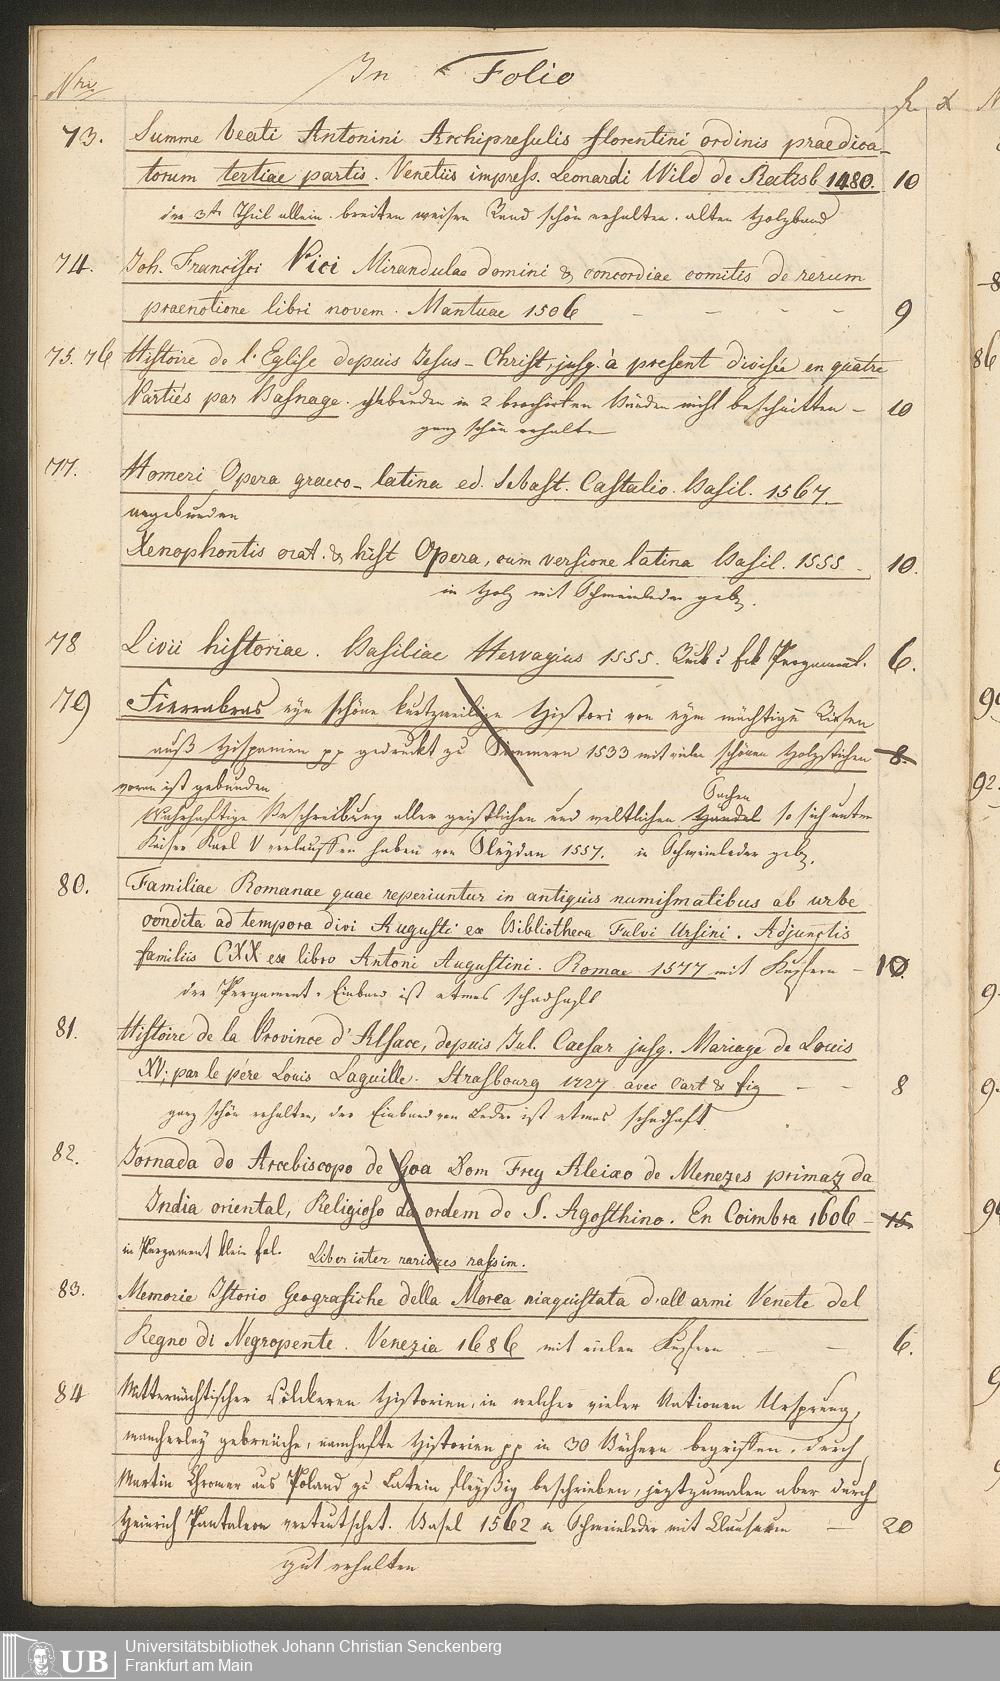 In Folio
Nro
fl. x
73. Summe beati Antonini Archipresulis florentini ordinis praedica-
torum tertiae partis. Venetiis impress. Leonardi Wild de Ratisb 1480. 10
der 3te Theil allein. breiten weisen Rand schön erhalten. alten Holzband
74. Joh. Francisci Pici Mirandulae domini & concordiae comitis de rerum
praenotione libri novem. Mantuae 1506 - - - - 9
75. 76 Histoire de l'Eglise depuis Jesus-Christ, jusq. à present divisée en quatre
Partiés par Basnage. gebunden in 2 brochirten Bänden nicht beschnitten - 10
ganz schön erhalten
77. Homeri Opera graeco-latina ed. Sebast. Castalio. Basil. 1567.
angebunden
Xenophontis orat. & hist Opera, cum versione latina Basil. 1555 - 10.
in Holz mit Schweinleder geb.
78 Livii historiae. Basiliae Hervagius 1555. Rück: & Eck Pergament. 6.
79 Fierrabras eyn schöne kurtzweilige Histori von eym mächtigē Riesen
auß Hispanien pp gedruckt zu Simmern 1533 mit vielen schönen Holzstichen 8.
voran ist gebunden
Sachen
Wahrhaftige Beschreibung aller geistlichen und weltlichen Händel so sich unter
Kaiser Karl V verlauffen haben von Sleydan 1557. in Schweinleder geb.
80. Familiae Romanae quae reperiuntur in antiquis numismatibus ab urbe
condita ad tempora divi Augusti ex Bibliotheca Fulvi Ursini. Adjunctis
familiis CXX ex libro Antoni Augustini. Romae 1577 mit Kupfern - 10.
der Pergament-Einband ist etwas schadhaft
81. Histoire de la Province d'Alsace, depuis Jul. Caesar jusq. Mariage de Louis
XV; par le pére Louis Laguille. Strasbourg 1727 avec Cart & fig - - 8
ganz schön erhalten, der Einband von Leder ist etwas schadhaft.
82. Jornada do Arcebiscopo de Goa Dom Frey Aleixo de Menezes primaz da
India oriental, Religioso da ordem de S. Agosthino. En Coimbra 1606 - 15.
in Pergament klein fol. Liber inter rariores rassim.
83. Memorie Istorio Geografiche della Morea riaquistata d'all armi Venete del
Regno di Negroponte. Venezia 1686 mit vielen Kupfern - - 6.
84 Mitternächtischer Völckeren Historien, in welcher vieler Nationen Ursprung,
mancherley gebreüche, namhafte Historien pp in 30 Büchern begriffen, durch
Martin Chromer aus Poland zu Latein fleyßig beschrieben, jeztzumalen aber durch
Heinrich Pantaleon verteutschet. Basel 1562 in Schweinleder mit Clausuren - 20
gut erhalten
UB
Universitätsbibliothek Johann Christian Senckenberg
Frankfurt am Main